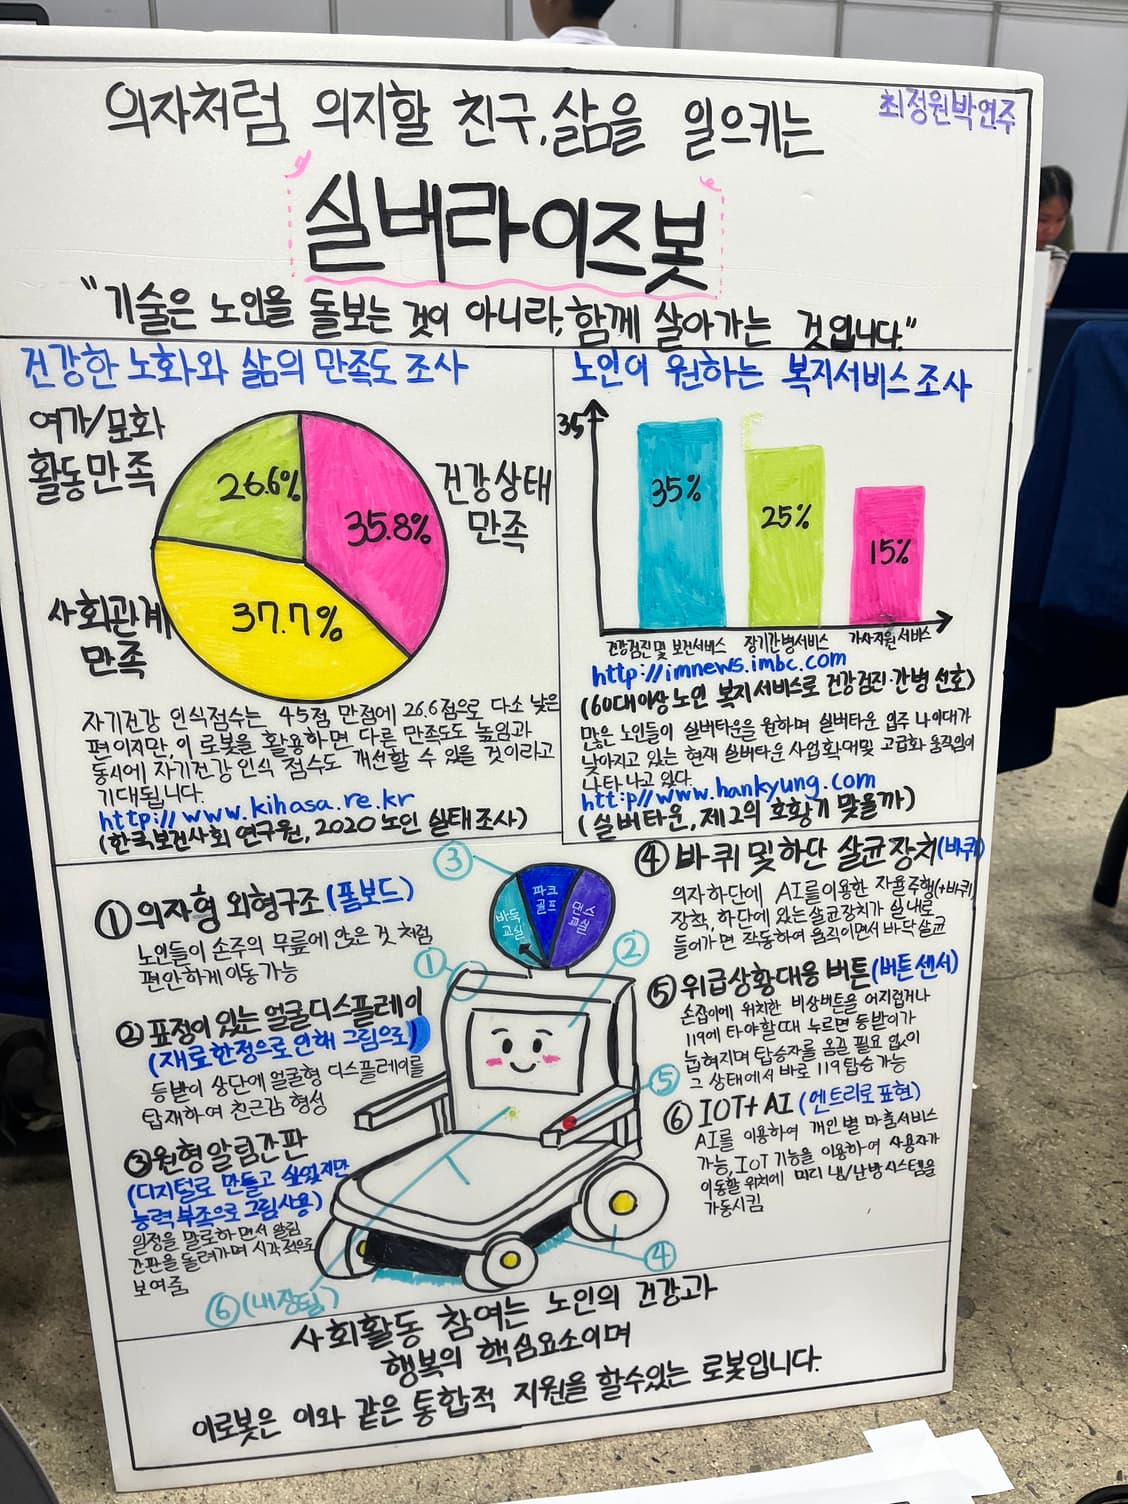 의자처럼 의지할 친구, 삶을 일으키는
최정원박연주
실버라이즈봇
"기술은 노인을 돌보는 것이 아니라, 함께 살아가는 것입니다."
건강한 노화와 삶의 만족도 조사
여가/문화
활동만족
26.6%
35.8%
건강상태
만족
사회관계
만족
37.7%
자기건강 인식점수는 45점 만점에 26.6점으로 다소 낮은
편이지만, 이 로봇을 활용하면 다른 만족도도 높임과
동시에 자기건강 인식 점수도 개선할 수 있을 것이라고
기대됩니다.
http://www.kihasa.re.kr
(한국보건사회 연구원, 2020 노인 실태조사)
노인이 원하는 복지서비스조사
35
35%
25%
15%
건강검진및 보건서비스 장기간병서비스 가사지원 서비스
http://imnews.imbc.com
(60대이상 노인 복지서비스로 건강검진·간병 선호)
많은 노인들이 실버타운을 원하며 실버타운 입주 나이대가
낮아지고 있는 현재 실버타운 사업확대및 고급화 움직임이
나타나고 있다.
htt:p//www.hankyung.com
(실버타운, 제2의 호황기 맞을까)
① 의자형 외형구조 (폼보드)
노인들이 손주의 무릎에 앉은 것 처럼
편안하게 이동 가능
② 표정이 있는 얼굴디스플레이
(재료한정으로 인해 그림으로)
등받이 상단에 얼굴형 디스플레이를
탑재하여 친근감 형성
③원형알림간판
(디지털로 만들고 싶었지만
능력부족으로 그림사용)
일정을 말로하면서 알림
간판을 돌려가며 시각적으로
보여줌
③
바둑
교실
파크
골프
댄스
교실
①
②
⑤
④
⑥(내장됨)
④ 바퀴 및 하단 살균장치(바퀴)
의자 하단에 AI를 이용한 자율주행(+바퀴)
장착, 하단에 있는 살균장치가 실내로
들어가면 작동하여 움직이면서 바닥살균
⑤위급상황대응 버튼(버튼센서)
손잡이에 위치한 비상버튼을 어지럽거나
119에 타야할때 누르면 등받이가
눕혀지며 탑승자를 옮길 필요 없이
그 상태에서 바로 119탑승가능
⑥ IOT+AI (엔트리로 표현)
AI를 이용하여 개인별 맞춤서비스
가능, IOT 기능을 이용하여 사용자가
이동할 위치에 미리 냉/난방시스템을
가동시킴
사회활동 참여는 노인의 건강과
행복의 핵심요소이며
이로봇은 이와 같은 통합적 지원을 할수있는 로봇입니다.